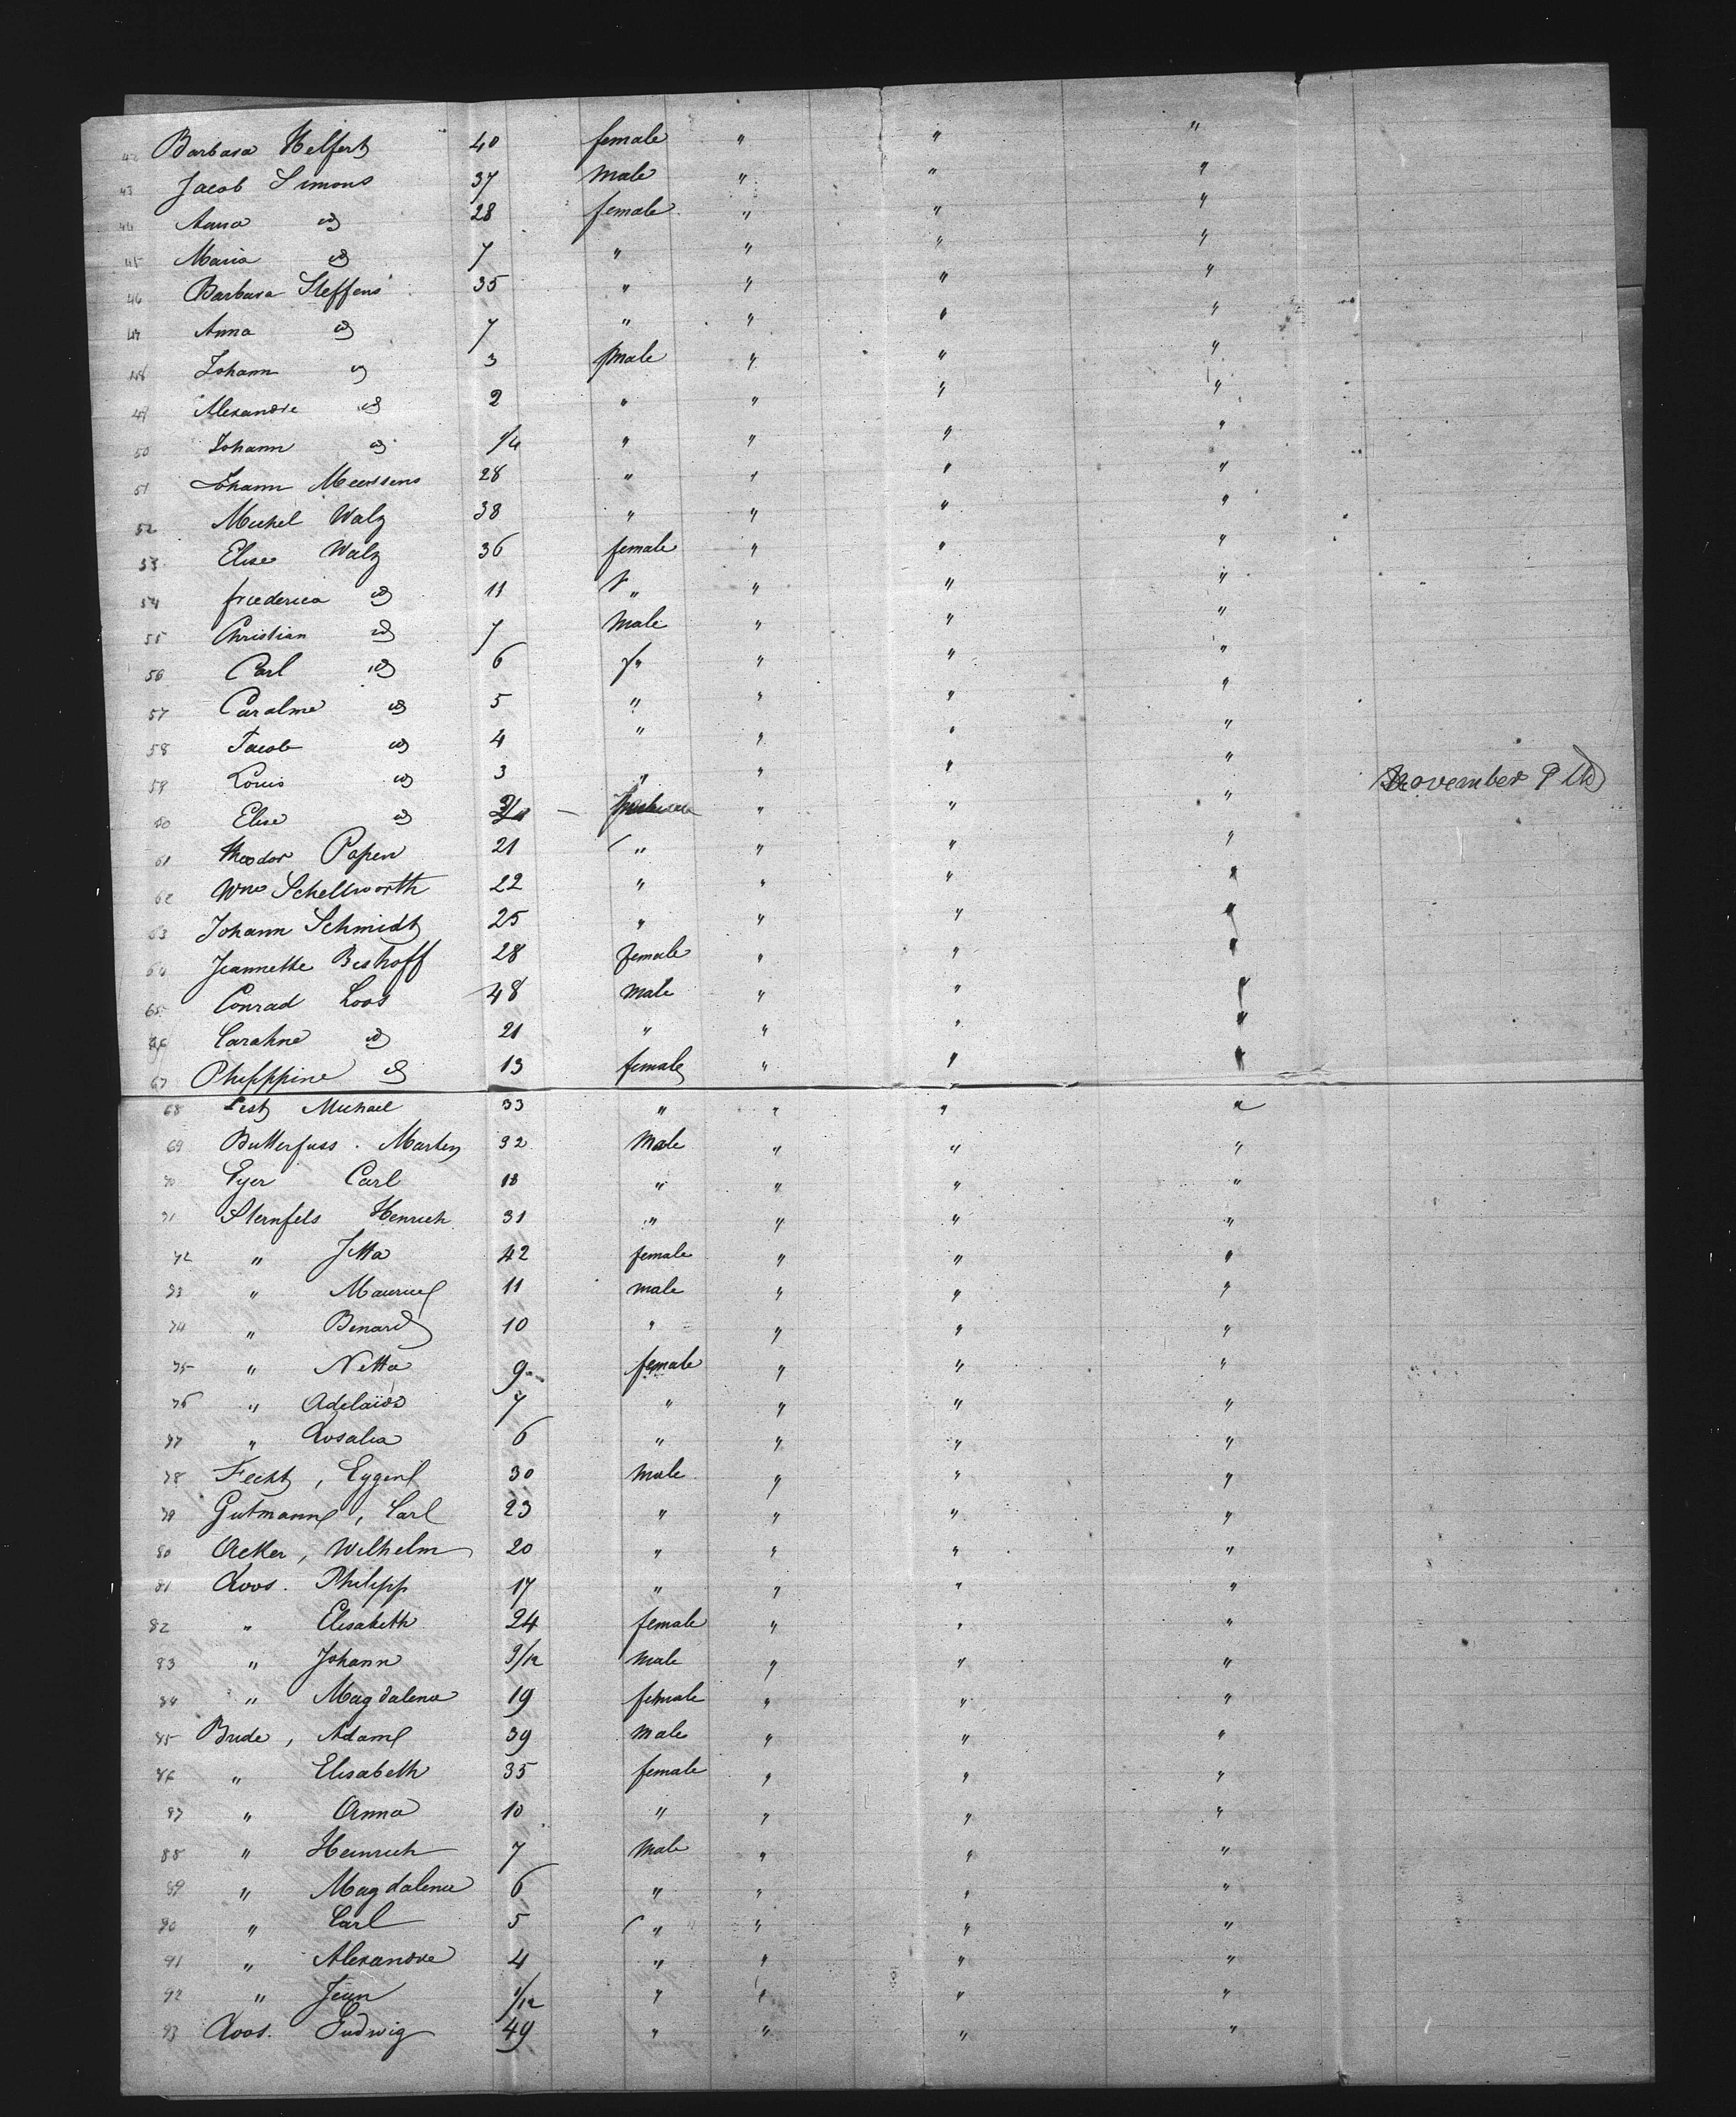 42 Barbara Helfert 40 female " " "
43 Jacob Simons 37 Male " " "
44 Anna id 28 female " " "
45 Maria id 7 " " " "
46 Barbara Steffens 35 " " " "
47 Anna id 7 " " " "
48 Johann id 3 male " " "
49 Alexandre id 2 " " " "
50 Johann id 1/4 " " " "
51 Johann Meurssens 28 " " " "
52 Michel Walz 38 " " " "
53 Elise Walz 36 female " " "
54 friederica id 11 " " " "
55 Christian id 7 Male " " "
56 Carl id 6 " " " "
57 Caroline id 5 " " " "
58 Jacob id 4 " " " "
59 Louis id 3 " " " "
60 Elise id " " " November 9th
61 Theodor Papen 21 " " " "
62 Wm Schellworth 22 " " " "
63 Johann Schmidt 25 " " " "
64 Jeannette Bishoff 28 female " " "
65 Conrad Loos 48 Male " " "
66 Caroline id 21 " " " "
67 Philippine id 13 female " " "
68 Lest Michael 33 " " " "
69 Butterfuss . Martin 32 Male " " "
70 Eyer Carl 18 " " " "
71 Sternfels Henrich 31 " " " "
72 " Jtta 42 female " " "
73 " Maurice 11 male " " "
74 " Benard 10 " " " "
75 " Netta 9 female " " "
76 " Adelaide 7 " " " "
77 " Rosalia 6 " " " "
78 Feist, Eygen 30 Male " " "
79 Gutmann, Carl 23 " " " "
80 Acker, Wilhelm 20 " " " "
81 Roos. Philipp 17 " " " "
82 " Elisabeth 24 female " " "
83 " Johann 9/12 Male " " "
84 " Magdalena 19 female " " "
85 Bride, Adam 39 Male " " "
86 " Elisabeth 35 female " " "
87 " Anna 10 " " " "
88 " Heinrich 7 Male " " "
89 " Magdalena 6 " " " "
90 " Carl 5 " " " "
91 " Alexandre 4 " " " "
92 " Jean 1/12 " " " "
93 Roos. Ludwig 49 " " " "